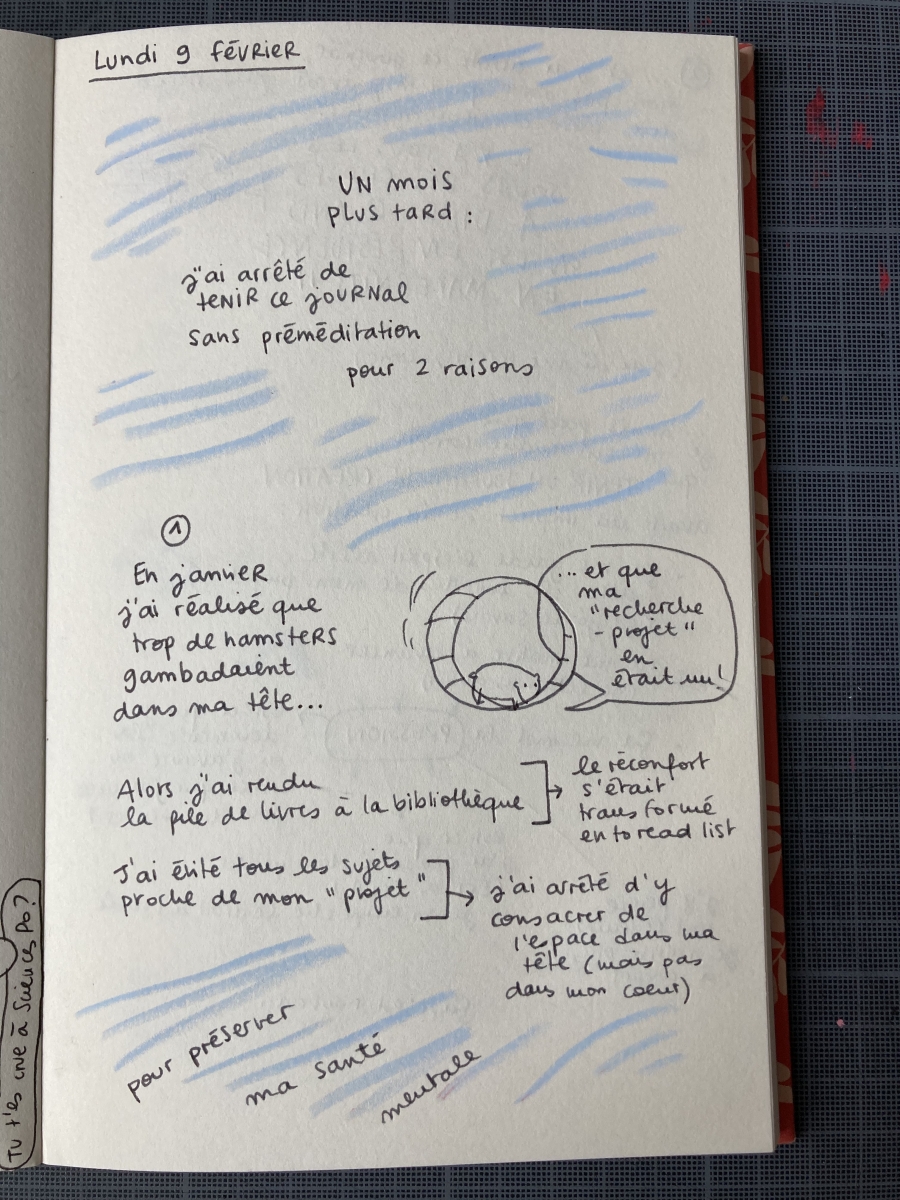 Lundi 9 février
UN mois
plus tard :
j'ai arrêté de
tenir ce journal
sans préméditation
pour 2 raisons
1
En janvier
j'ai réalisé que
trop de hamsters
gambadaient
dans ma tête...
... et que
ma
"recherche
- projet"
en
était un !
Alors j'ai rendu
la pile de livres à la bibliothèque
le réconfort
s'était
transformé
en to read list
J'ai évité tous les sujets
proche de mon "projet"
j'ai arrêté d'y
consacrer de
l'espace dans ma
tête (mais pas
dans mon coeur)
pour préserver
ma santé
mentale
Tu t'es crue à Sciences Po ?